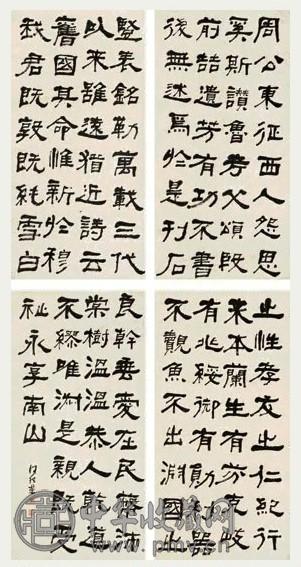 周公東征西人怨思
奚斯讚魯考父頌殷
前喆遺芳有功不書
後無述焉於是刊石
豎表銘勒萬載三代
以来雖遠猶近詩云
舊國其命惟新於穆
我君既敦既純雪白
之性孝友之仁紀行
来本蘭生有芬克岐
有兆綏御有勳利器
不覿魚不出淵國之
良幹垂愛在民蔽沛
棠樹溫溫恭人乾道
不繆唯淑是親既受
祉永享南山
中华收藏网